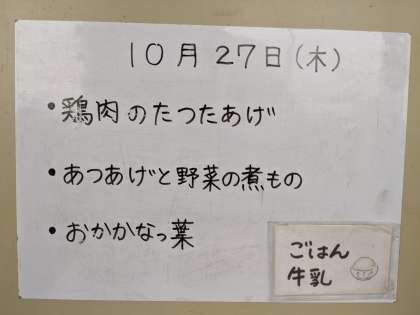 10月27日(木)
•鶏肉のたつたあげ
•あつあげと野菜の煮もの
•おかかなっ葉
ごはん
牛乳